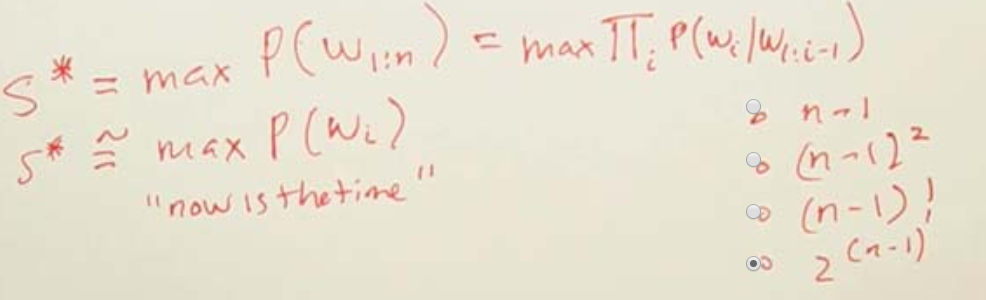 S* = max P(w1:n) = max ∏i P(wi/w1:i-1)
S* ≅ max P(wi)
"now is the time"
n-1
(n-1)²
(n-1)!
2^(n-1)